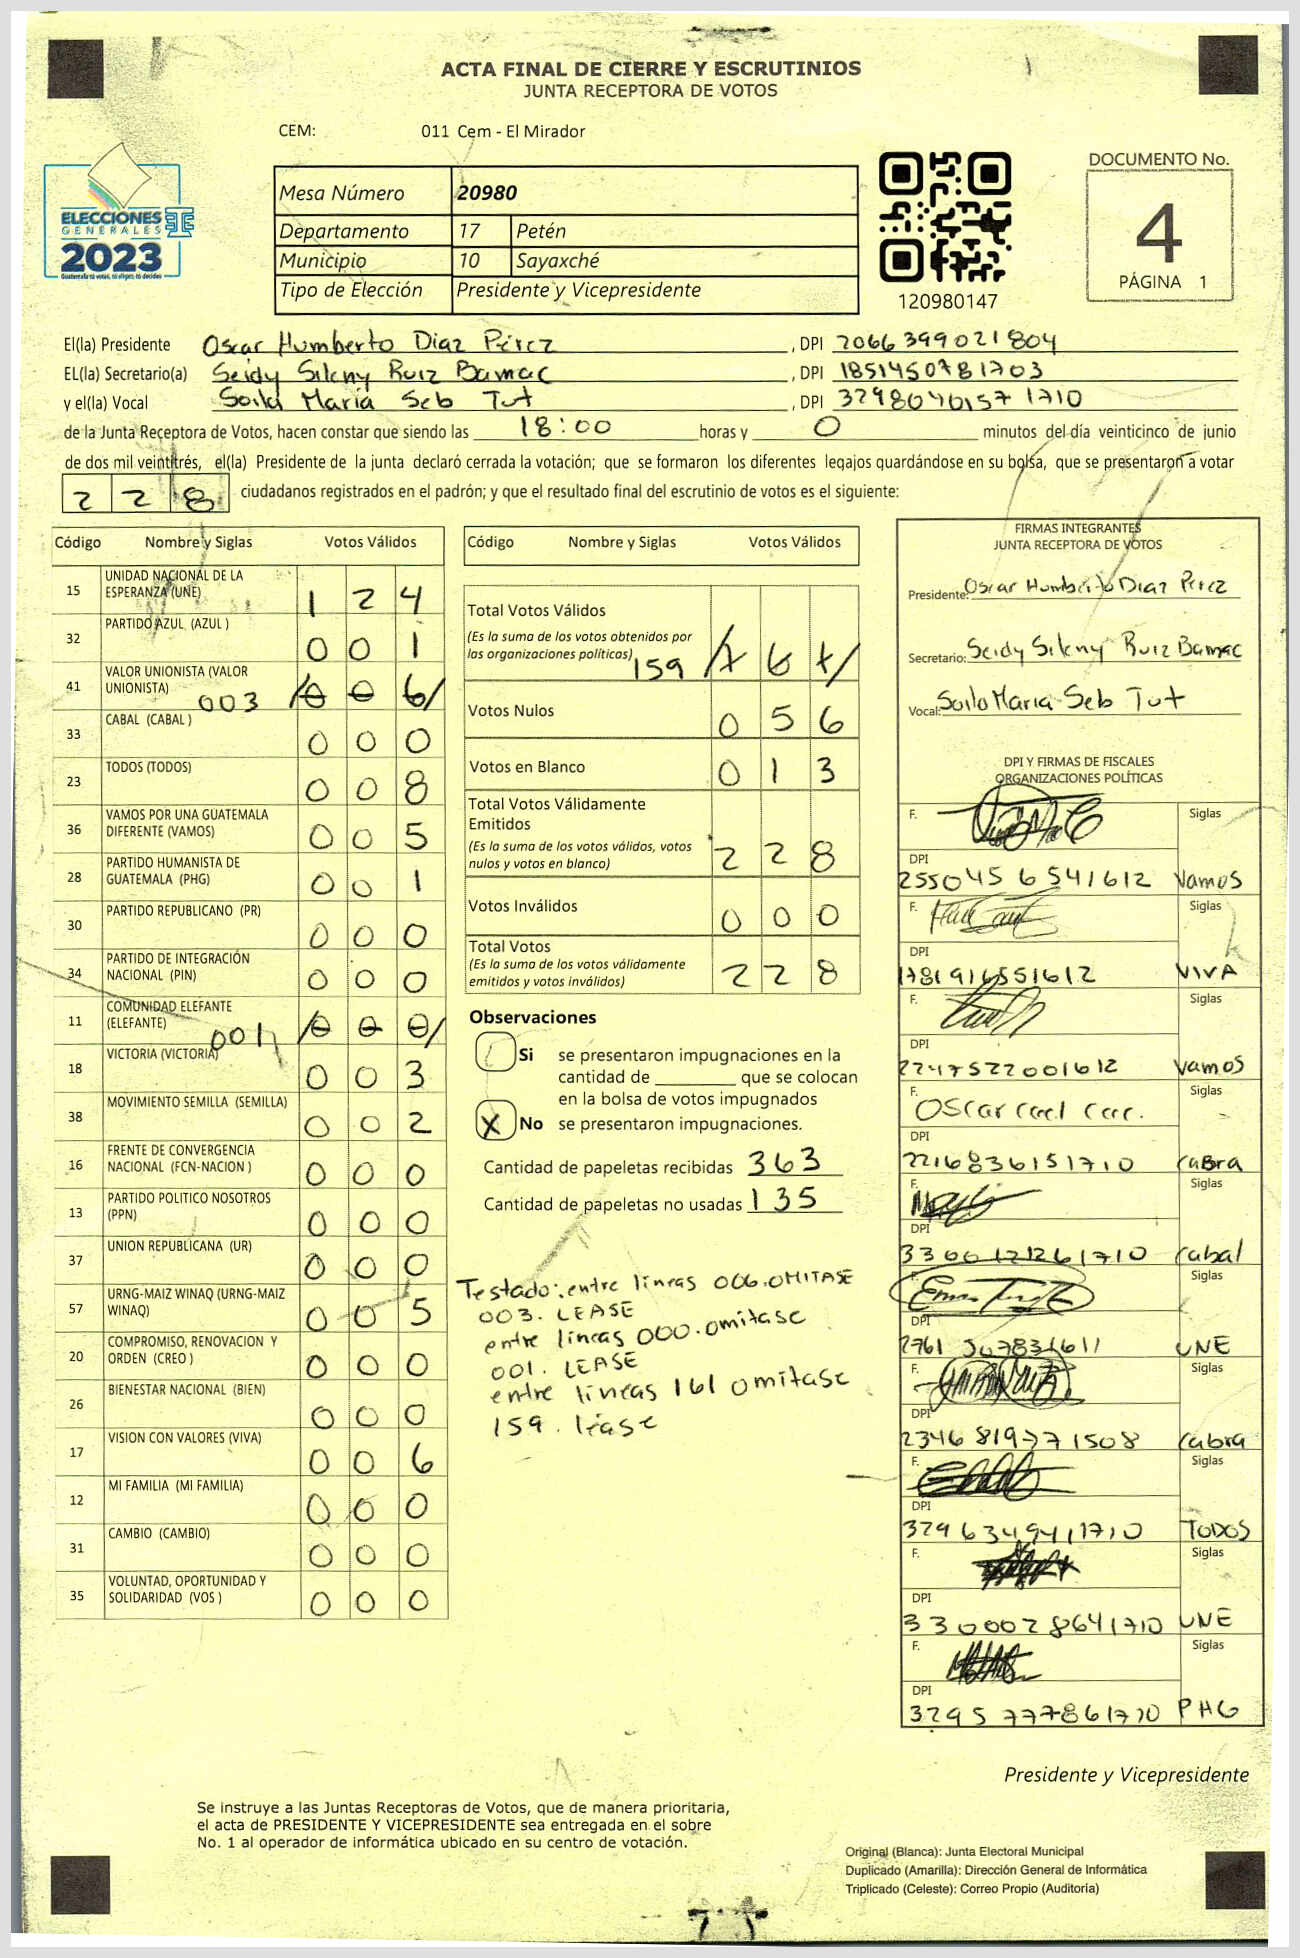 ACTA FINAL DE CIERRE Y ESCRUTINIOS
JUNTA RECEPTORA DE VOTOS
CEM: 011 Cem - El Mirador
ELECCIONES
GENERALES
2023
Guatemala tú votas, tú eliges, tú decides
Mesa Número 20980
Departamento 17 Petén
Municipio 10 Sayaxché
Tipo de Elección Presidente y Vicepresidente
120980147
DOCUMENTO No.
4
PÁGINA 1
El(la) Presidente Oscar Humberto Diaz Pérez , DPI 2066399021804
EL(la) Secretario(a) Seidy Sileny Ruiz Bamac , DPI 1851450781703
y el(la) Vocal Soila Maria Seb Tut , DPI 3298040151710
de la Junta Receptora de Votos, hacen constar que siendo las 18:00 horas y 0 minutos del día veinticinco de junio
de dos mil veintitrés, el(la) Presidente de la junta declaró cerrada la votación; que se formaron los diferentes legajos guardándose en su bolsa, que se presentaron a votar
228 ciudadanos registrados en el padrón; y que el resultado final del escrutinio de votos es el siguiente:
Código Nombre y Siglas Votos Válidos
15 UNIDAD NACIONAL DE LA
ESPERANZA (UNE) 1 2 4
32 PARTIDO AZUL (AZUL ) 0 0 1
41 VALOR UNIONISTA (VALOR
UNIONISTA) 003 /0 0 6/
33 CABAL (CABAL ) 0 0 0
23 TODOS (TODOS) 0 0 8
36 VAMOS POR UNA GUATEMALA
DIFERENTE (VAMOS) 0 0 5
28 PARTIDO HUMANISTA DE
GUATEMALA (PHG) 0 0 1
30 PARTIDO REPUBLICANO (PR) 0 0 0
34 PARTIDO DE INTEGRACIÓN
NACIONAL (PIN) 0 0 0
11 COMUNIDAD ELEFANTE
(ELEFANTE) 001 /0 0 0/
18 VICTORIA (VICTORIA) 0 0 3
38 MOVIMIENTO SEMILLA (SEMILLA) 0 0 2
16 FRENTE DE CONVERGENCIA
NACIONAL (FCN-NACION ) 0 0 0
13 PARTIDO POLITICO NOSOTROS
(PPN) 0 0 0
37 UNION REPUBLICANA (UR) 0 0 0
57 URNG-MAIZ WINAQ (URNG-MAIZ
WINAQ) 0 0 5
20 COMPROMISO, RENOVACION Y
ORDEN (CREO ) 0 0 0
26 BIENESTAR NACIONAL (BIEN) 0 0 0
17 VISION CON VALORES (VIVA) 0 0 6
12 MI FAMILIA (MI FAMILIA) 0 0 0
31 CAMBIO (CAMBIO) 0 0 0
35 VOLUNTAD, OPORTUNIDAD Y
SOLIDARIDAD (VOS ) 0 0 0
Código Nombre y Siglas Votos Válidos
Total Votos Válidos
(Es la suma de los votos obtenidos por
las organizaciones políticas) 159 /1 6 1/
Votos Nulos 0 5 6
Votos en Blanco 0 1 3
Total Votos Válidamente
Emitidos
(Es la suma de los votos válidos, votos
nulos y votos en blanco) 2 2 8
Votos Inválidos 0 0 0
Total Votos
(Es la suma de los votos válidamente
emitidos y votos inválidos) 2 2 8
Observaciones
Si se presentaron impugnaciones en la
cantidad de ________ que se colocan
en la bolsa de votos impugnados
X No se presentaron impugnaciones.
Cantidad de papeletas recibidas 363
Cantidad de papeletas no usadas 135
Testado: entre lineas 006.OMITASE
003. LEASE
entre lineas 000.omitase
001. LEASE
entre lineas 161 omitase
159. léase
FIRMAS INTEGRANTES
JUNTA RECEPTORA DE VOTOS
Presidente: Oscar Humberto Diaz Pérez
Secretario: Seidy Sileny Ruiz Bamac
Vocal: Soila Maria Seb Tut
DPI Y FIRMAS DE FISCALES
ORGANIZACIONES POLÍTICAS
F. Siglas
DPI
2550456541612 Vamos
F. Siglas
DPI
1781916551612 VIVA
F. Siglas
DPI
2247522001612 Vamos
F. Oscar Siglas
DPI
2216836151710 CaBra
F. Siglas
DPI
3360121261710 Cabal
F. Siglas
DPI
2761 307831611 UNE
F. Siglas
DPI
2346819771508 Cabra
F. Siglas
DPI
3296349411710 TODOS
F. Siglas
DPI
3300028641710 UNE
F. Siglas
DPI
3295777861710 PHG
Presidente y Vicepresidente
Se instruye a las Juntas Receptoras de Votos, que de manera prioritaria,
el acta de PRESIDENTE Y VICEPRESIDENTE sea entregada en el sobre
No. 1 al operador de informática ubicado en su centro de votación.
Original (Blanca): Junta Electoral Municipal
Duplicado (Amarilla): Dirección General de Informática
Triplicado (Celeste): Correo Propio (Auditoria)